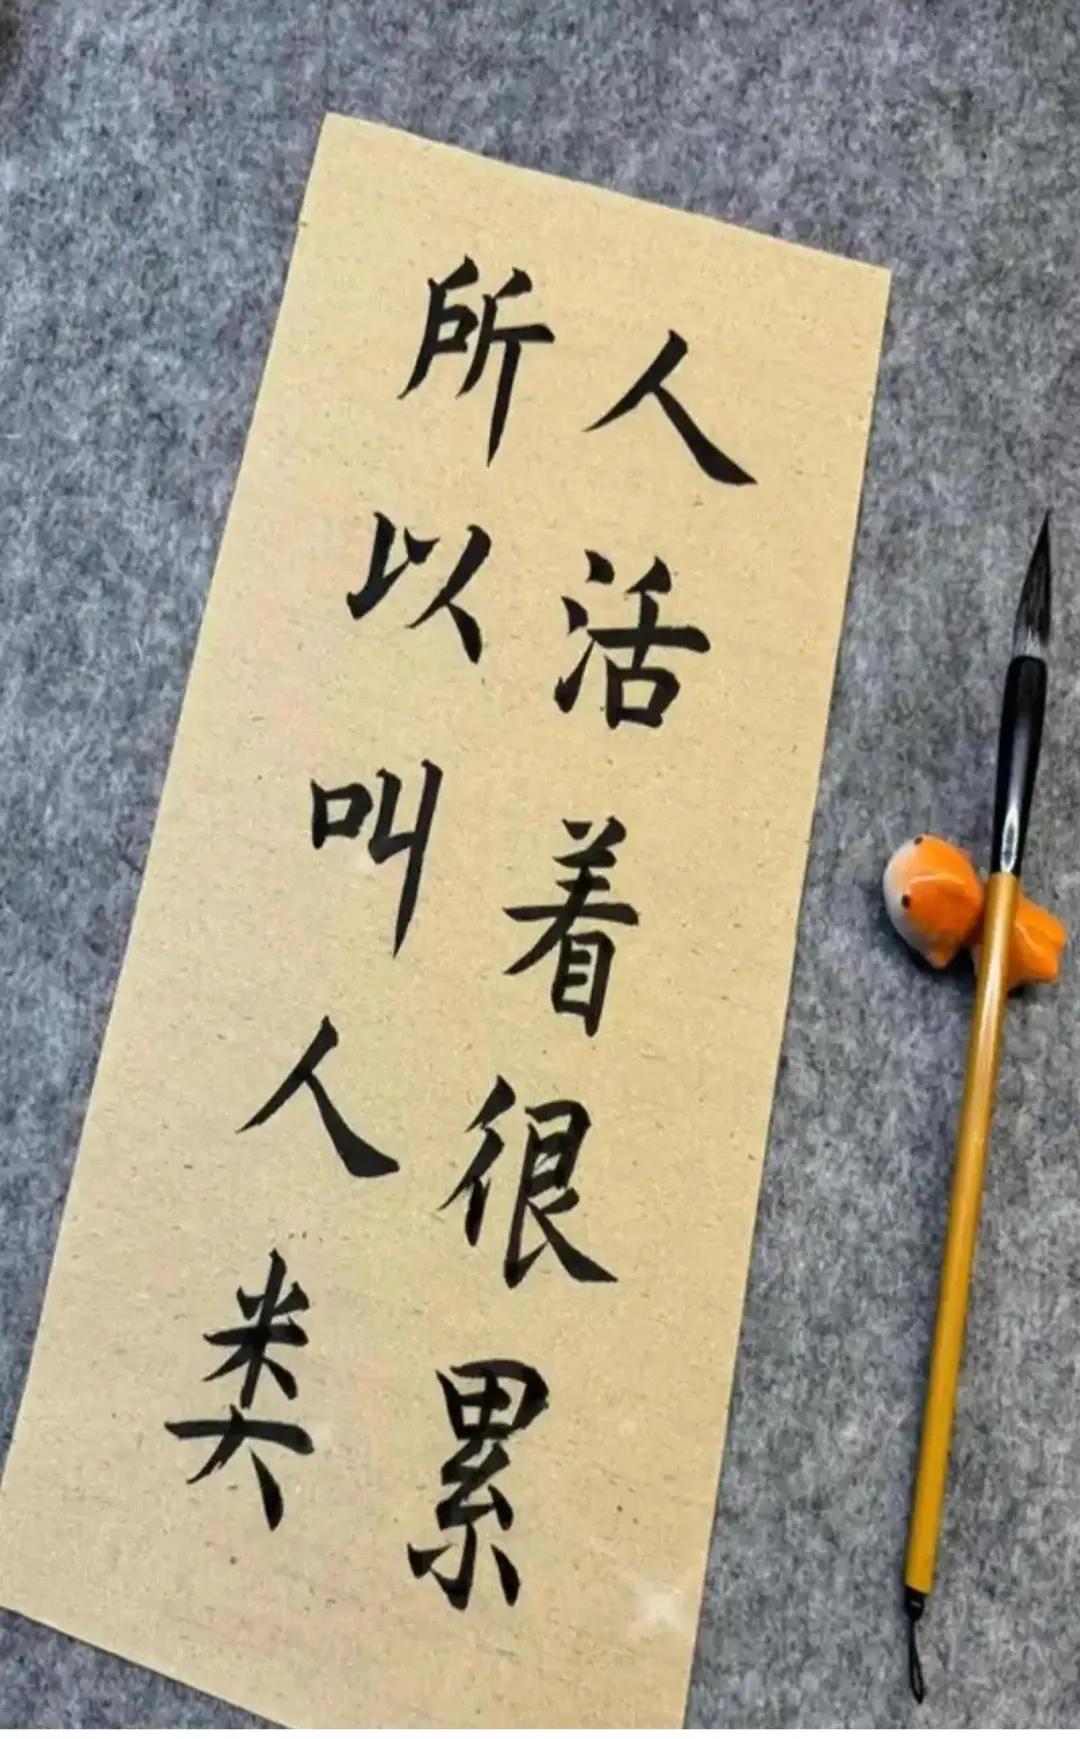 人活着很累
所以叫人类